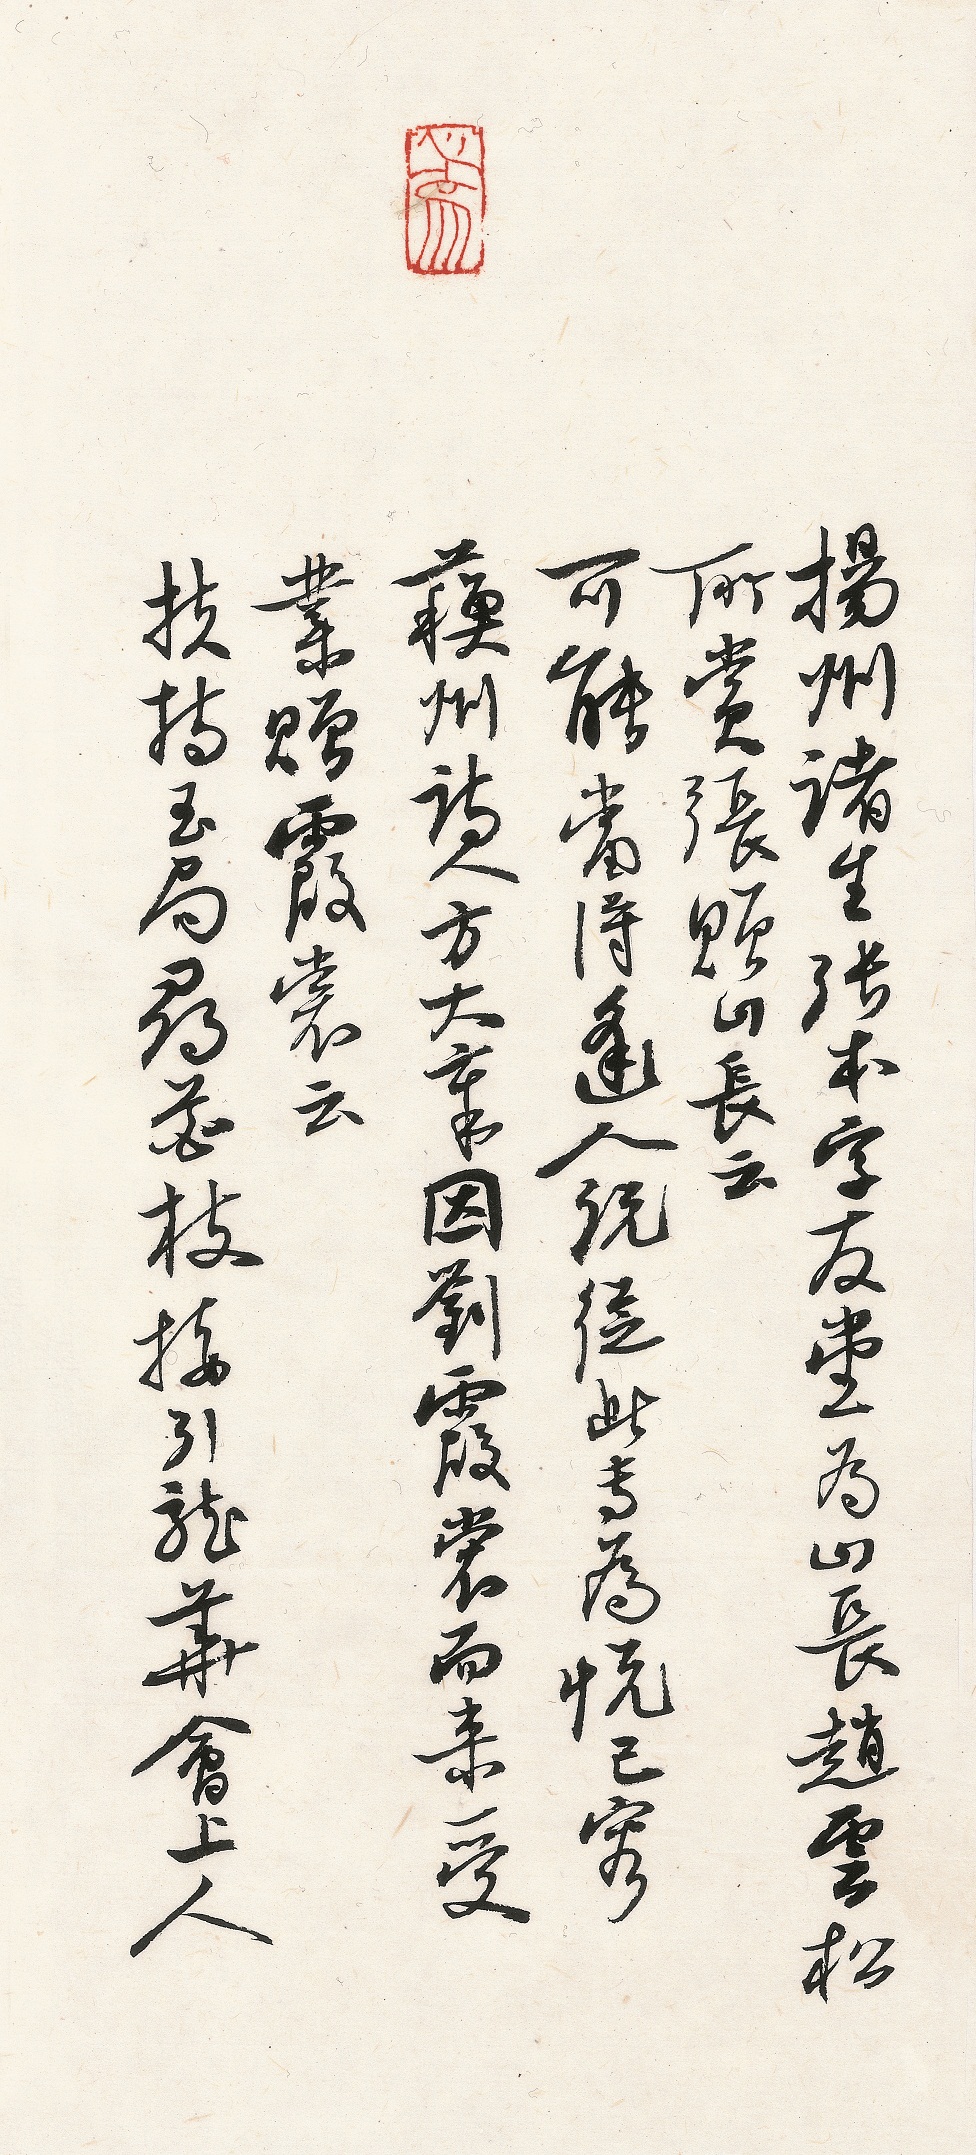 揚州諸生張本字友堂為山長趙雲松
所賞張贈山長云
可能當得逢人說從此專為悅己容
蘇州詩人方大章因劉霞裳而来受
業贈霞裳云
扶持玉局尋花枝接引龍華會上人